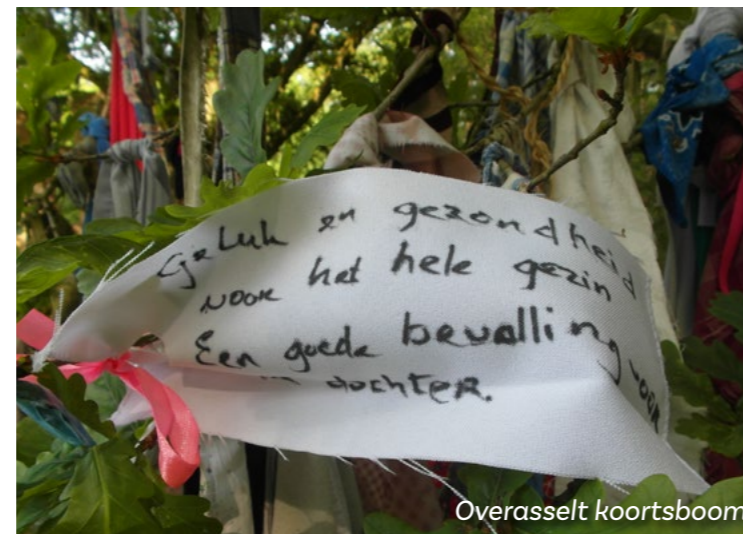 Geluk en gezondheid
voor het hele gezin
Een goede bevalling voor
dochter.
Overasselt koortsboom